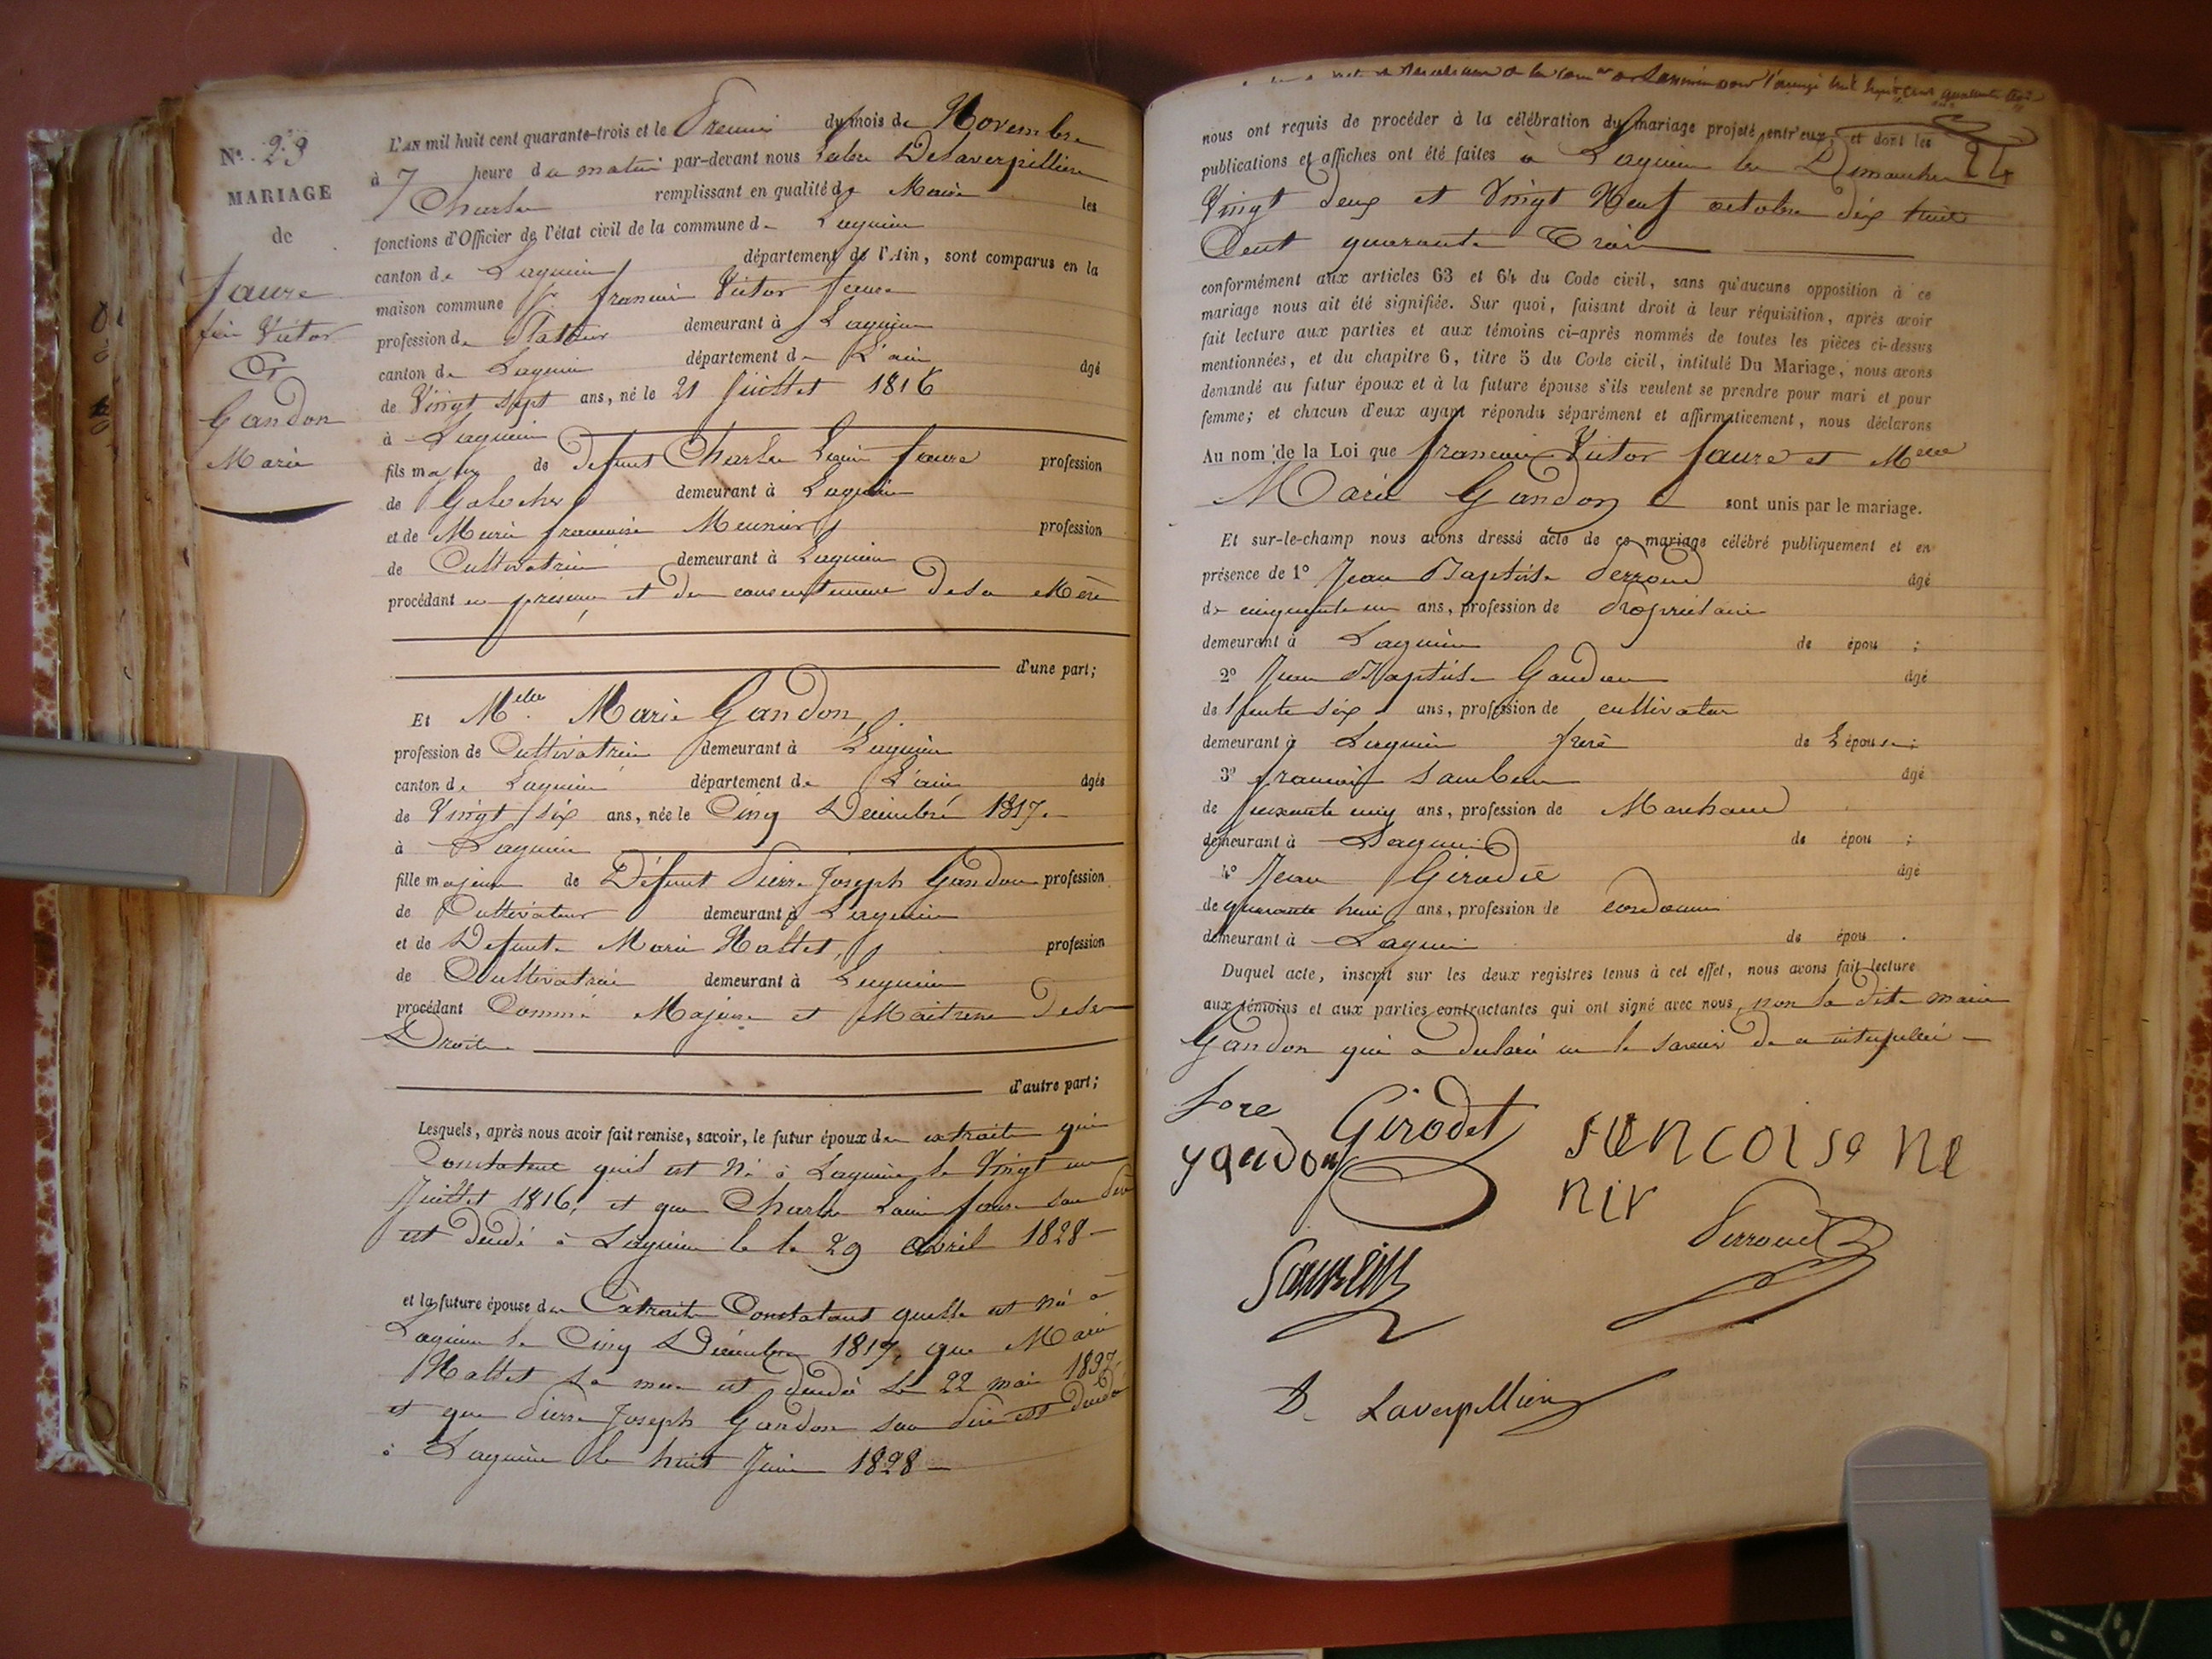 N° 23
MARIAGE
de
faure
fçois Victor
Et
Gandon
Marie
L'AN mil huit cent quarante-trois et le Premier du mois de Novembre
à 7 heure du matin par-devant nous Delaverpillière
Charles remplissant en qualité de Maire les
fonctions d'Officier de l'état civil de la commune de Lagnieu
canton de Lagnieu département de l'Ain, sont comparus en la
maison commune Sr. francois Victor faure
profession de demeurant à Lagnieu
canton de Lagnieu département de L'ain âgé
de Vingt sept ans, né le 21 Juillet 1816
à Lagnieu
fils majeur de Defunt Charles faure profession
de Galocher demeurant à Lagnieu
et de Marie francoise Meunier profession
de Cultivatrice demeurant à Lagnieu
procédant en presence et du consentement de sa Mère
d'une part;
Et Melle Marie Gandon
profession de Cultivatrice demeurant à Lagnieu
canton de Lagnieu département de L'ain âgée
de Vingt six ans, née le Cinq Decembre 1817
à Lagnieu
fille majeure de Défunt Pierre Joseph Gandon profession
de Cultivateur demeurant à Lagnieu
et de Defunte Marie Mallet profession
de Cultivatrice demeurant à Lagnieu
procédant Comme Majeure et Maitresse de ses
Droits
d'autre part;
Lesquels, après nous avoir fait remise, savoir, le futur époux des extraits qui
Constatent quil est Né à Lagnieu le Vingt un
Juillet 1816, et que Charles faure son Père
est decedé à Lagnieu le le 29 avril 1828
et la future épouse des Extraits Constatant quelle est Né à
Lagnieu le Cinq Décembre 1817, que Marie
Mallet sa mere est decedée le 22 mai
et que Pierre Joseph Gandon son Père est decedé
à Lagnieu le huit Juin 1828
nous ont requis de procéder à la célébration du mariage projeté entr'eux, et dont les
publications et affiches ont été faites à Lagnieu les Dimanches 24
Vingt deux et Vingt Neuf octobre dix huit
Cent quarante Trois
conformément aux articles 63 et 64 du Code civil, sans qu'aucune opposition à ce
mariage nous ait été signifiée. Sur quoi, faisant droit à leur réquisition, après avoir
fait lecture aux parties et aux témoins ci-après nommés de toutes les pièces ci-dessus
mentionnées, et du chapitre 6, titre 5 du Code civil, intitulé Du Mariage, nous avons
demandé au futur époux et à la future épouse s'ils veulent se prendre pour mari et pour
femme; et chacun d'eux ayant répondu séparément et affirmativement, nous déclarons
Au nom de la Loi que francois Victor faure et Melle
Marie Gandon sont unis par le mariage.
Et sur-le-champ nous avons dressé acte de ce mariage célébré publiquement et en
présence de 1° Jean Baptiste Perroud âgé
de cinquante un ans, profession de Propriétaire
demeurant à Lagnieu de épou ;
2° Jean Baptiste Gandon âgé
de trente six ans, profession de cultivateur
demeurant à Lagnieu frere de L'épouse;
3° francois Sambein âgé
de soixante cinq ans, profession de Marchand
demeurant à Lagnieu de épou ;
4° Jean Girodié âgé
de quarante huit ans, profession de cordonnier
demeurant à Lagnieu de épou .
Duquel acte, inscrit sur les deux registres tenus à cet effet, nous avons fait lecture
aux témoins et aux parties contractantes qui ont signé avec nous, non la dite marie
Gandon qui a declaré ne le savoir de ce interpellée
fore
Girodet
yandon
funcoise ne
nir
Sambein
Perroud
D. Laverpillière